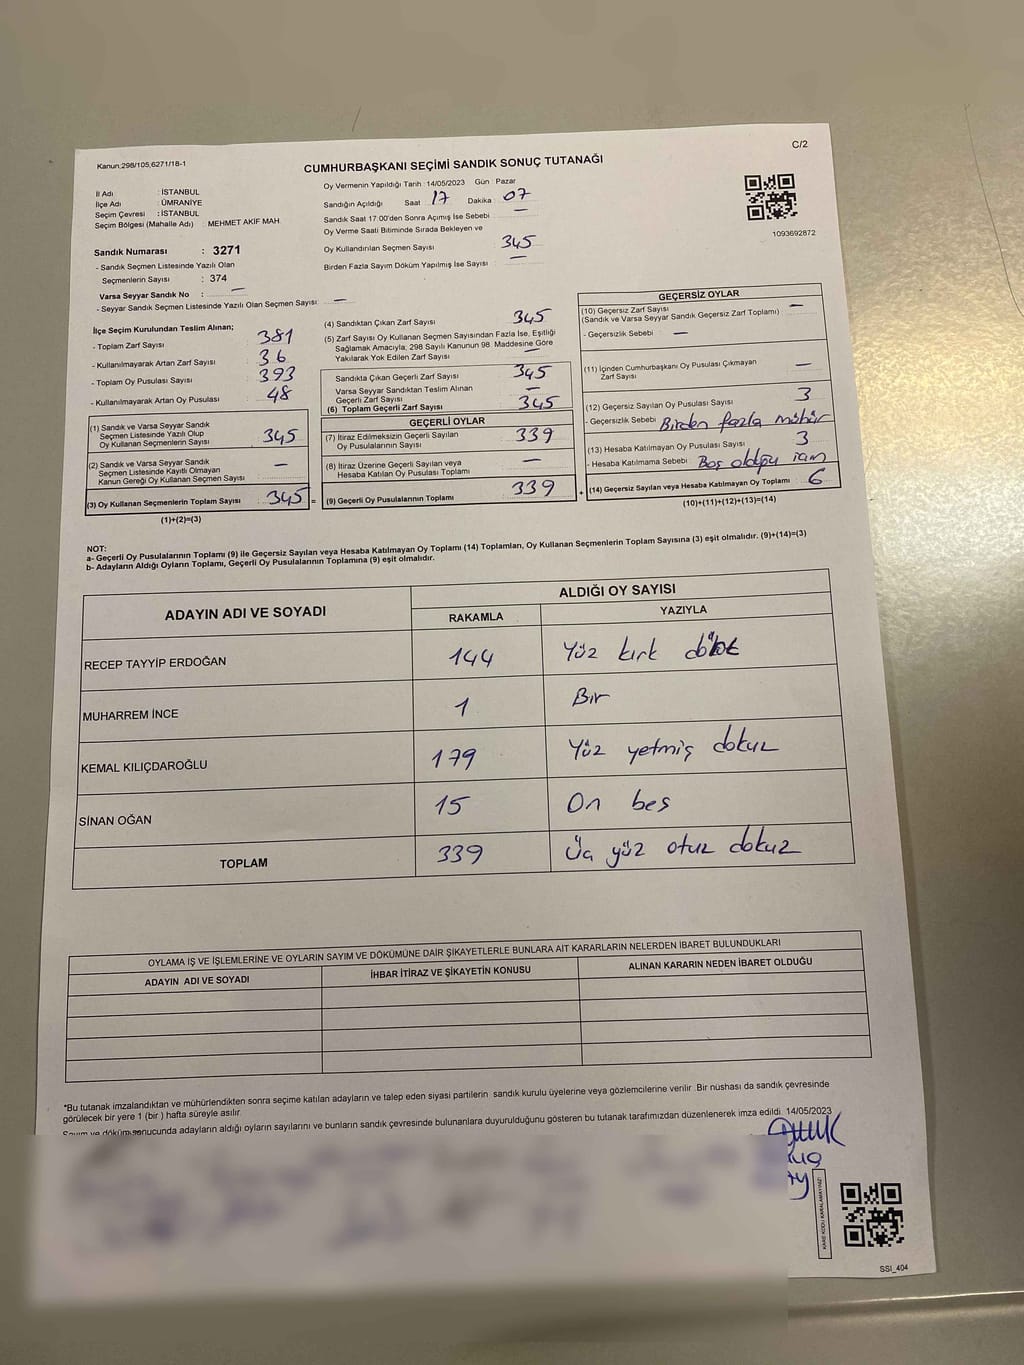 Kanun:298/105,6271/18-1
C/2
CUMHURBAŞKANI SEÇİMİ SANDIK SONUÇ TUTANAĞI
İl Adı : İSTANBUL
İlçe Adı : ÜMRANİYE
Seçim Çevresi : İSTANBUL
Seçim Bölgesi (Mahalle Adı) : MEHMET AKİF MAH.
Sandık Numarası : 3271
- Sandık Seçmen Listesinde Yazılı Olan
Seçmenlerin Sayısı : 374
Varsa Seyyar Sandık No : —
- Seyyar Sandık Seçmen Listesinde Yazılı Olan Seçmen Sayısı: —
Oy Vermenin Yapıldığı Tarih : 14/05/2023 Gün : Pazar
Sandığın Açıldığı Saat 17 Dakika 07
Sandık Saat 17:00'den Sonra Açımış İse Sebebi —
Oy Verme Saati Bitiminde Sırada Bekleyen ve
Oy Kullandırılan Seçmen Sayısı 345
Birden Fazla Sayım Döküm Yapılmış İse Sayısı —
1093692872
İlçe Seçim Kurulundan Teslim Alınan;
- Toplam Zarf Sayısı 381
- Kullanılmayarak Artan Zarf Sayısı 36
- Toplam Oy Pusulası Sayısı 393
- Kullanılmayarak Artan Oy Pusulası 48
(1) Sandık ve Varsa Seyyar Sandık
Seçmen Listesinde Yazılı Olup
Oy Kullanan Seçmenlerin Sayısı 345
(2) Sandık ve Varsa Seyyar Sandık
Seçmen Listesinde Kayıtlı Olmayan
Kanun Gereği Oy Kullanan Seçmen Sayısı —
(3) Oy Kullanan Seçmenlerin Toplam Sayısı 345 =
(1)+(2)=(3)
(4) Sandıktan Çıkan Zarf Sayısı 345
(5) Zarf Sayısı Oy Kullanan Seçmen Sayısından Fazla İse, Eşitliği
Sağlamak Amacıyla, 298 Sayılı Kanunun 98. Maddesine Göre
Yakılarak Yok Edilen Zarf Sayısı —
Sandıkta Çıkan Geçerli Zarf Sayısı 345
Varsa Seyyar Sandıktan Teslim Alınan
Geçerli Zarf Sayısı —
(6) Toplam Geçerli Zarf Sayısı 345
GEÇERLİ OYLAR
(7) İtiraz Edilmeksizin Geçerli Sayılan
Oy Pusulalarının Sayısı 339
(8) İtiraz Üzerine Geçerli Sayılan veya
Hesaba Katılan Oy Pusulası Toplamı —
(9) Geçerli Oy Pusulalarının Toplamı 339 +
GEÇERSİZ OYLAR
(10) Geçersiz Zarf Sayısı —
(Sandık ve Varsa Seyyar Sandık Geçersiz Zarf Toplamı)
- Geçersizlik Sebebi —
(11) İçinden Cumhurbaşkanı Oy Pusulası Çıkmayan
Zarf Sayısı —
(12) Geçersiz Sayılan Oy Pusulası Sayısı 3
- Geçersizlik Sebebi Birden fazla mühür
(13) Hesaba Katılmayan Oy Pusulası Sayısı 3
- Hesaba Katılmama Sebebi Boş olduğu için
(14) Geçersiz Sayılan veya Hesaba Katılmayan Oy Toplamı 6
(10)+(11)+(12)+(13)=(14)
NOT:
a- Geçerli Oy Pusulalarının Toplamı (9) ile Geçersiz Sayılan veya Hesaba Katılmayan Oy Toplamı (14) Toplamları, Oy Kullanan Seçmenlerin Toplam Sayısına (3) eşit olmalıdır. (9)+(14)=(3)
b- Adayların Aldığı Oyların Toplamı, Geçerli Oy Pusulalarının Toplamına (9) eşit olmalıdır.
ADAYIN ADI VE SOYADI ALDIĞI OY SAYISI
RAKAMLA YAZIYLA
RECEP TAYYİP ERDOĞAN 144 Yüz kırk dört
MUHARREM İNCE 1 Bir
KEMAL KILIÇDAROĞLU 179 Yüz yetmiş dokuz
SİNAN OĞAN 15 On beş
TOPLAM 339 Üç yüz otuz dokuz
OYLAMA İŞ VE İŞLEMLERİNE VE OYLARIN SAYIM VE DÖKÜMÜNE DAİR ŞİKAYETLERLE BUNLARA AİT KARARLARIN NELERDEN İBARET BULUNDUKLARI
ADAYIN ADI VE SOYADI İHBAR İTİRAZ VE ŞİKAYETİN KONUSU ALINAN KARARIN NEDEN İBARET OLDUĞU
*Bu tutanak imzalandıktan ve mühürlendikten sonra seçime katılan adayların ve talep eden siyasi partilerin sandık kurulu üyelerine veya gözlemcilerine verilir. Bir nüshası da sandık çevresinde
görülecek bir yere 1 (bir ) hafta süreyle asılır.
Sayım ve döküm sonucunda adayların aldığı oyların sayılarını ve bunların sandık çevresinde bulunanlara duyurulduğunu gösteren bu tutanak tarafımızdan düzenlenerek imza edildi. 14/05/2023
KARE KODU KARALAMAYINIZ!
SSI_404